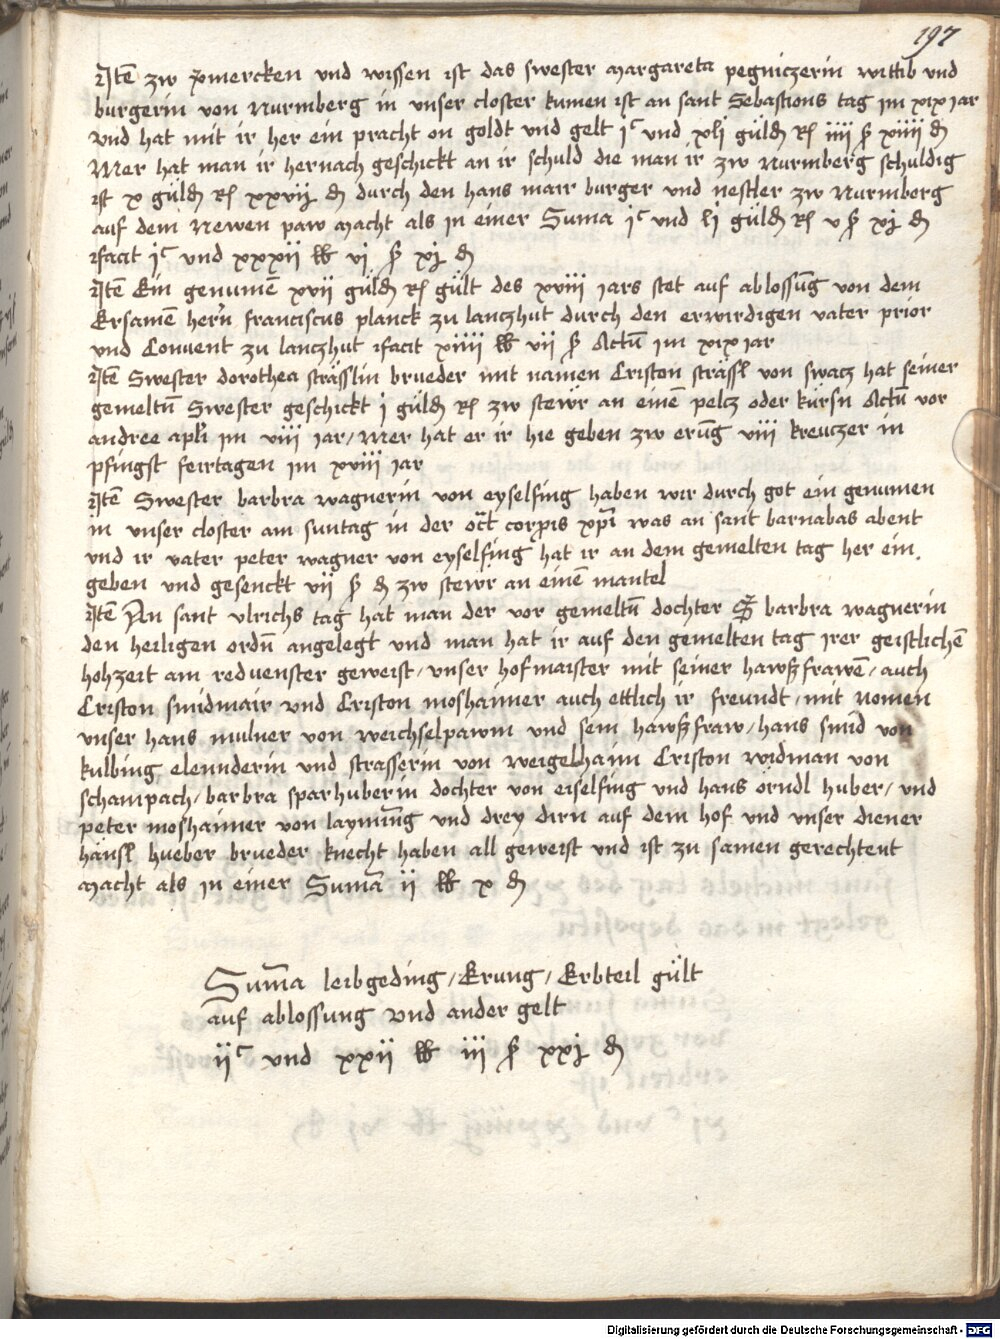 197
Itē zw v̄mercken vnd wissen ist das swester Margareta pegniczerin wittib vnd
burgerin von Nurmberg in vnser closter kumen ist an sant Sebastions tag im xix jar
vnd hat mit ir her ein pracht on goldt vnd gelt jᶜ vnd xlj güld̄ R̄ iiij ß xiiij ₰
Mer hat man ir hernach geschickt an ir schuld die man ir zw Nurmberg schuldig
ist x güld̄ R̄ xxvij ₰ durch den hans mair burger vnd nestler zw Nurmberg
auf dem Newen paw Macht als in einer Suma jᶜ vnd lj güld̄ R̄ v ß xj ₰
facit jᶜ vnd xxxij ℔ vj ß xj ₰
Itē Ein genumē xvij güld̄ R̄ gült des xviij jars stet auf ablossūg von dem
Ersamē hern franciscus planck zu lanczhut durch den erwirdigen vater prior
vnd Conuent zu lanczhut facit xiiij ℔ vij ß Actū im xix jar
Itē Swester dorothea strässlin brueder mit namen Criston strässl von swacz hat seiner
gemeltn̄ Swester geschickt j güld̄ R̄ zw stewr an einē pelcz oder kürsn Actū vor
andree apl̄i im xviij jar / Mer hat er ir hie geben zw erūg viij kreuczer in
pfingst feirtagen im xviij jar
Itē Swester barbra wagnerin von eyselfing haben wir durch got ein genumen
in vnser closter am suntag in der oct̄ corpris xp̄i was an sant barnabas abent
vnd ir vater peter wagner von eyselfing hat ir an dem gemelten tag her ein
geben vnd gesenckt vij ß ₰ zw stewr an einē mantel
Itē An sant vlrichs tag hat man der vor gemeltn̄ dochter barbra wagnerin
den heiligen ordn̄ angelegt vnd man hat ir auf den gemelten tag irer geistlichē
hohzeit am redvenster geweist / vnser hofmaister mit seiner hawßfrawē / auch
Criston smidmair vnd Criston moshaimer auch ettlich ir freundt / mit nomen
vnser hans mulner von weichselpawm vnd sein hawßfraw / hans smid von
kulbing elennderin vnd strasserin von weigelhaim Criston widman von
schampach / barbra sparhuberin dochter von eiselfing vnd hans örndl huber / vnd
peter moshaimer von laymīng vnd drey dirn auf dem hof vnd vnser diener
hänsl hueber brueder knecht haben all geweist vnd ist zu samen gerechtent
Macht als in einer Sumā ij ℔ x ₰
Sum̄a leibgeding / Erung / Erbteil gült
auf ablossung vnd ander gelt
ijᶜ vnd xxij ℔ iij ß xxj ₰
Digitalisierung gefördert durch die Deutsche Forschungsgemeinschaft - DFG